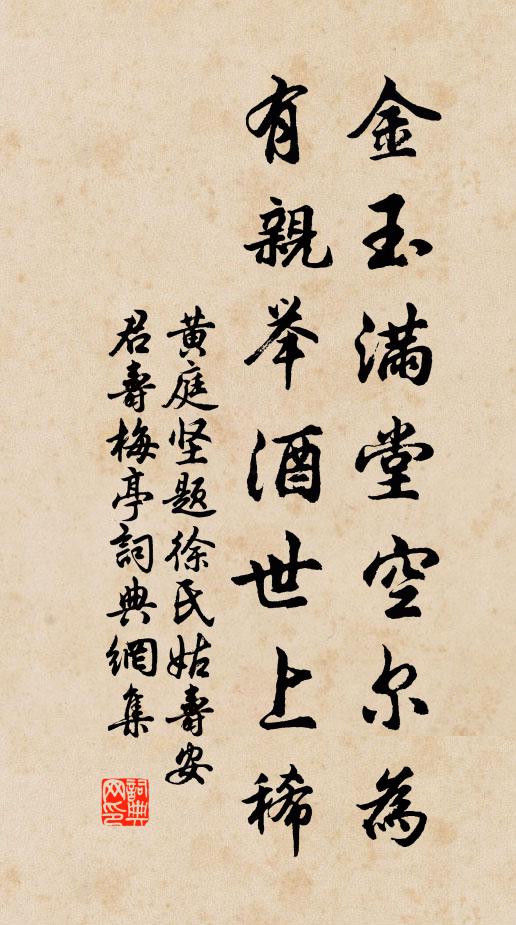 金玉满堂空尔為
有親举酒世上稀
黄庭坚題徐氏姑壽安
君壽梅亭詞典網集
詞典网印